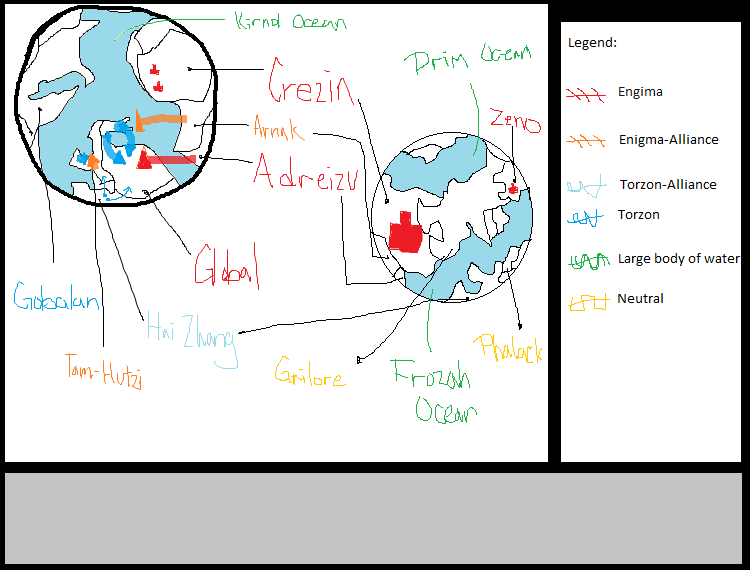 Kirnd Ocean
Crezin
Arnak
Adreizu
Global
Gobalan
Hai Zhang
Tam-Hutzi
Drim Ocean
Zeno
Grilore
Phalack
Frozah
Ocean
Legend:
Engima
Enigma-Alliance
Torzon-Alliance
Torzon
Large body of water
Neutral